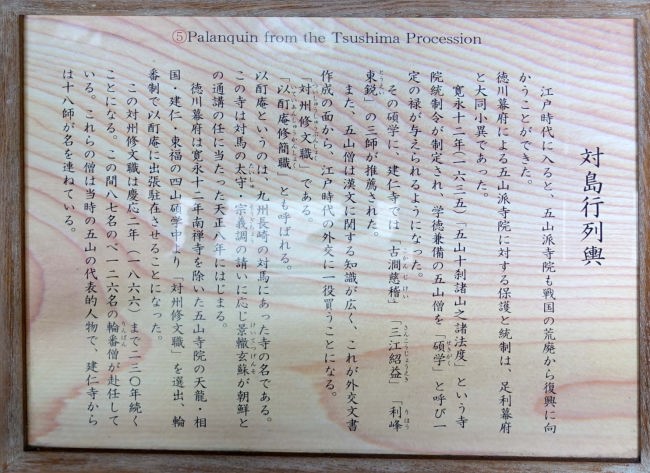 ⑤Palanquin from the Tsushima Procession
対島行列輿
江戸時代に入ると、五山派寺院も戦国の荒廃から復興に向
かうことができた。
徳川幕府による五山派寺院に対する保護と統制は、足利幕府
と大同小異であった。
寛永十二年（一六三五）「五山十刹諸山之諸法度」という寺
院統制令が制定され、学徳兼備の五山僧を「碩学」と呼び一
定の禄が与えられるようになった。
その碩学に、建仁寺では「古澗慈稽」「三江紹益」「利峰
東鋭」の三師が推薦された。
また、五山僧は漢文に関する知識が広く、これが外交文書
作成の面から、江戸時代の外交に一役買うことになる。
「対州修文職」である。
「以酊庵修簡職」とも呼ばれる。
以酊庵というのは、九州長崎の対馬にあった寺の名である。
この寺は対馬の太守・宗義調の請いに応じ景轍玄蘇が朝鮮と
の通講の任に当たった天正八年にはじまる。
徳川幕府は寛永十二年南禅寺を除いた五山寺院の天龍・相
国・建仁・東福の四山碩学中より「対州修文職」を選出、輪
番制で以酊庵に出張駐在させることになった。
この対州修文職は慶応二年（一八六六）まで二三〇年続く
ことになる。この間八七名のべ一二六名の輪番僧が赴任して
いる。これらの僧は当時の五山の代表的人物で、建仁寺から
は十八師が名を連ねている。